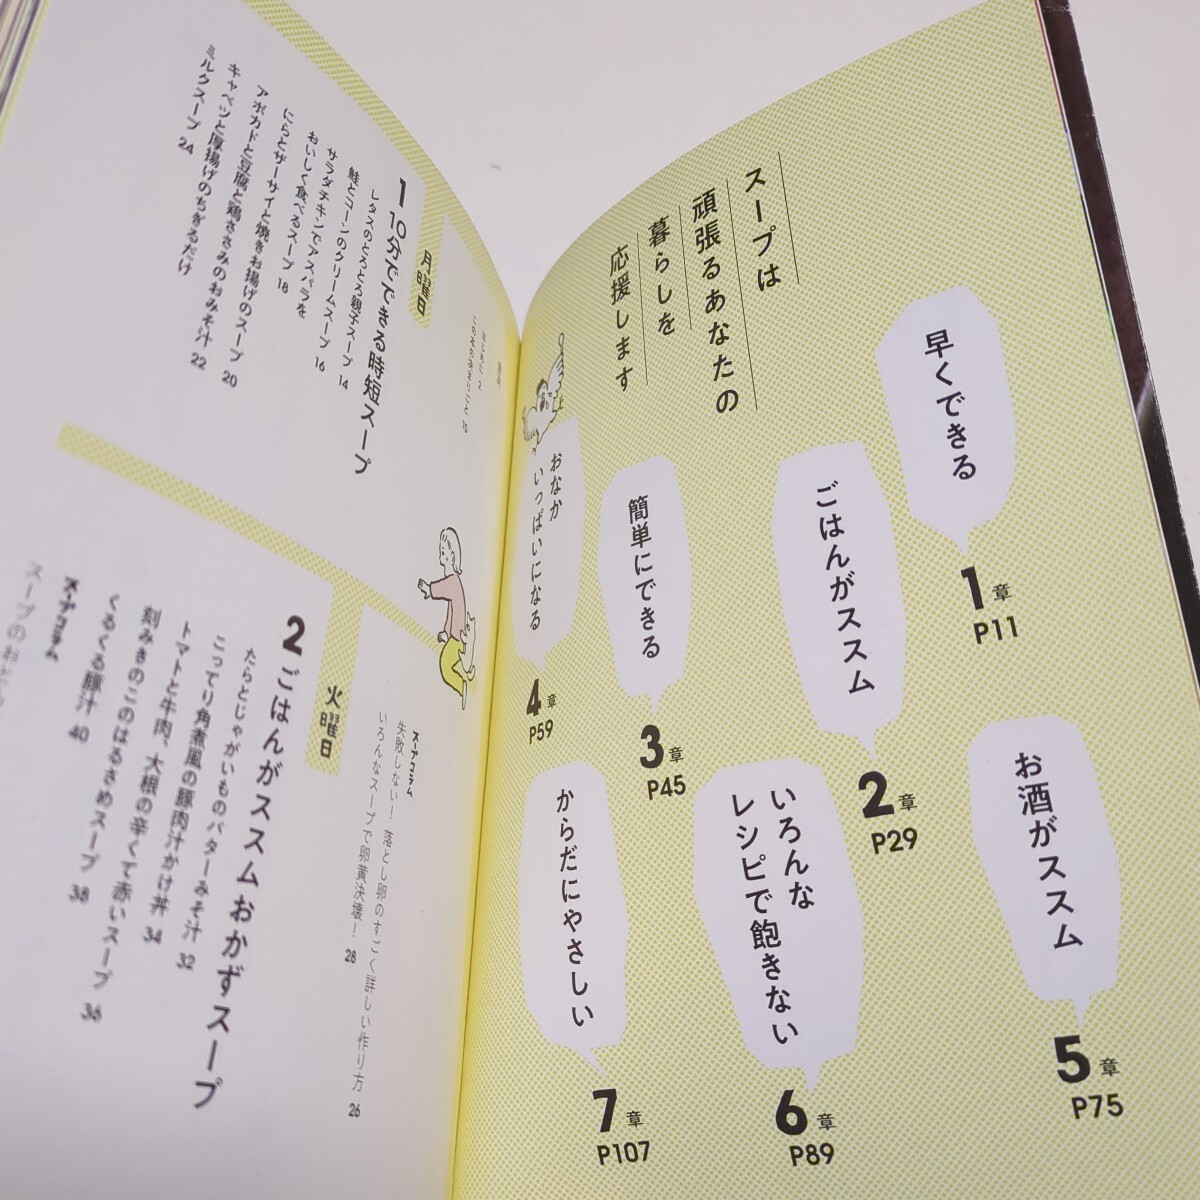 スープは
頑張るあなたの
暮らしを
応援します
早くできる
1章
P11
ごはんがススム
2章
P29
簡単にできる
3章
P45
おなか
いっぱいになる
4章
P59
お酒がススム
5章
P75
いろんな
レシピで飽きない
6章
P89
からだにやさしい
7章
P107
はじめに 2
月曜日
1 10分でできる時短スープ
レタスのとろとろ親子スープ 14
鮭とコーンのクリームスープ 16
サラダチキンでアスパラを
おいしく食べるスープ 18
にらとザーサイと焼きお揚げのスープ 20
アボカドと豆腐と鶏ささみのおみそ汁 22
キャベツと厚揚げのちぎるだけ
ミルクスープ 24
スープコラム
失敗しない！ 落とし卵のすごく詳しい作り方 26
いろんなスープで卵黄決壊！ 28
火曜日
2 ごはんがススムおかずスープ
たらとじゃがいものバターみそ汁 32
こってり角煮風の豚肉汁かけ丼 34
トマトと牛肉、大根の辛くて赤いスープ 36
刻みきのこのはるさめスープ 38
くるくる豚汁 40
スープコラム
スープのおとも